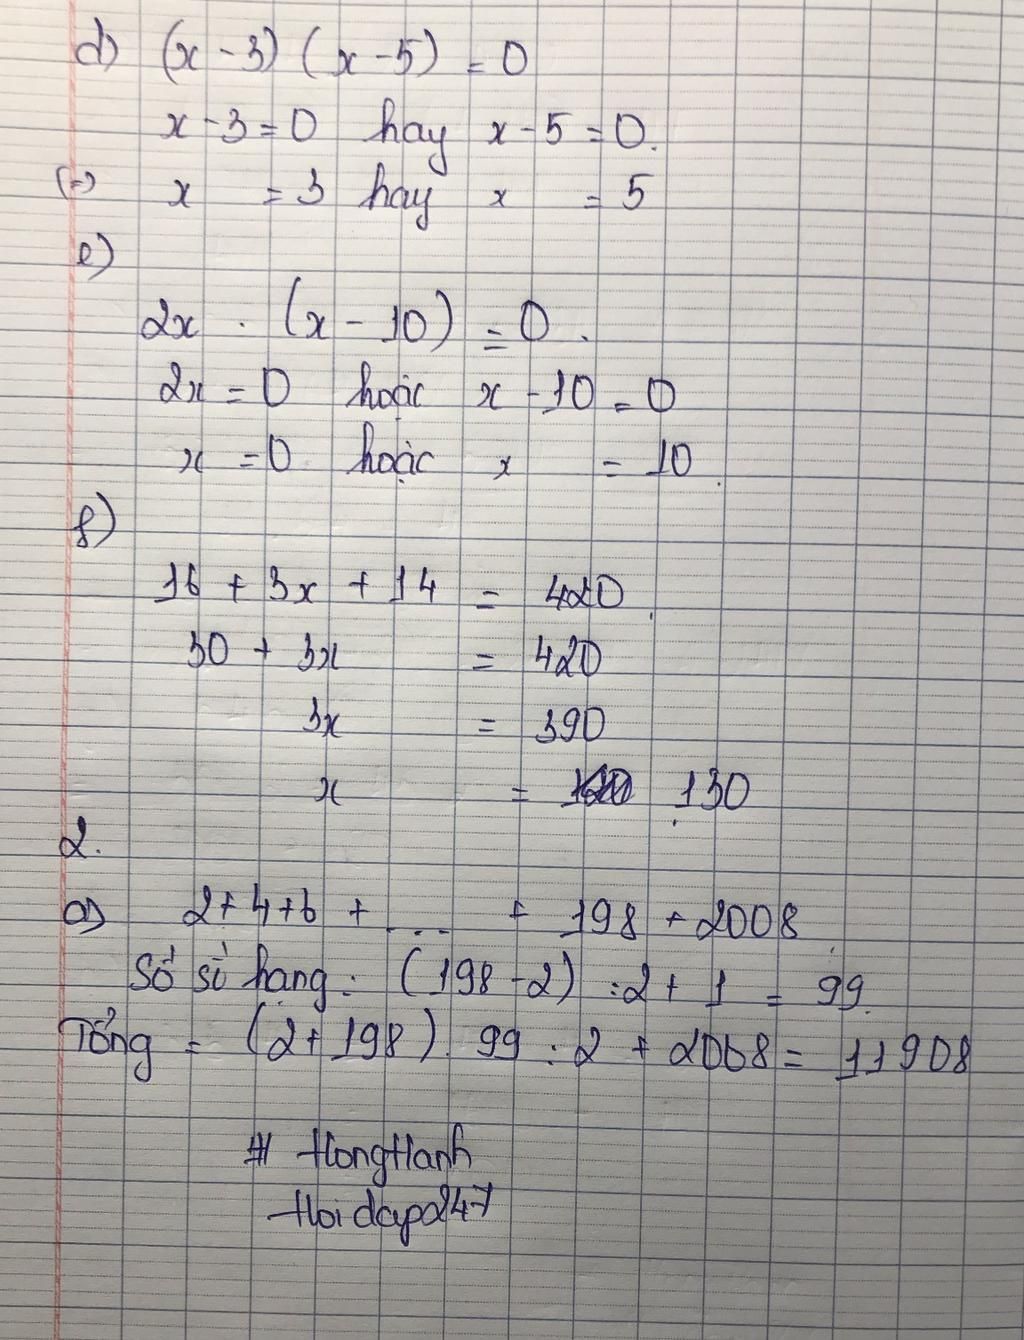 d) (x - 3) (x - 5) = 0
x - 3 = 0 hay x - 5 = 0.
(=) x = 3 hay x = 5
e)
2x . (x - 10) = 0.
2x = 0 hoặc x - 10 = 0
x = 0 hoặc x = 10
f)
16 + 3x + 14 = 420
30 + 3x = 420
3x = 390
x = 130
2.
a) 2 + 4 + 6 + ... + 198 + 2008
Số số hạng : (198 - 2) : 2 + 1 = 99
Tổng = (2 + 198) . 99 : 2 + 2008 = 11908
# HongHanh
Hoidap247